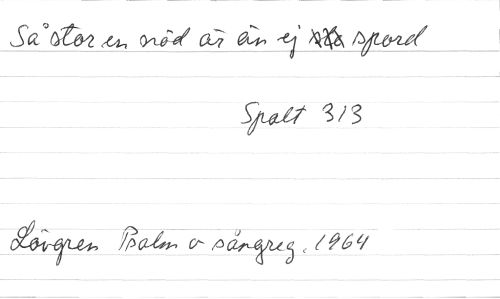 Så stor en nöd är än ej spord
Spalt 313
Lövgren Psalm o sångreg. 1964